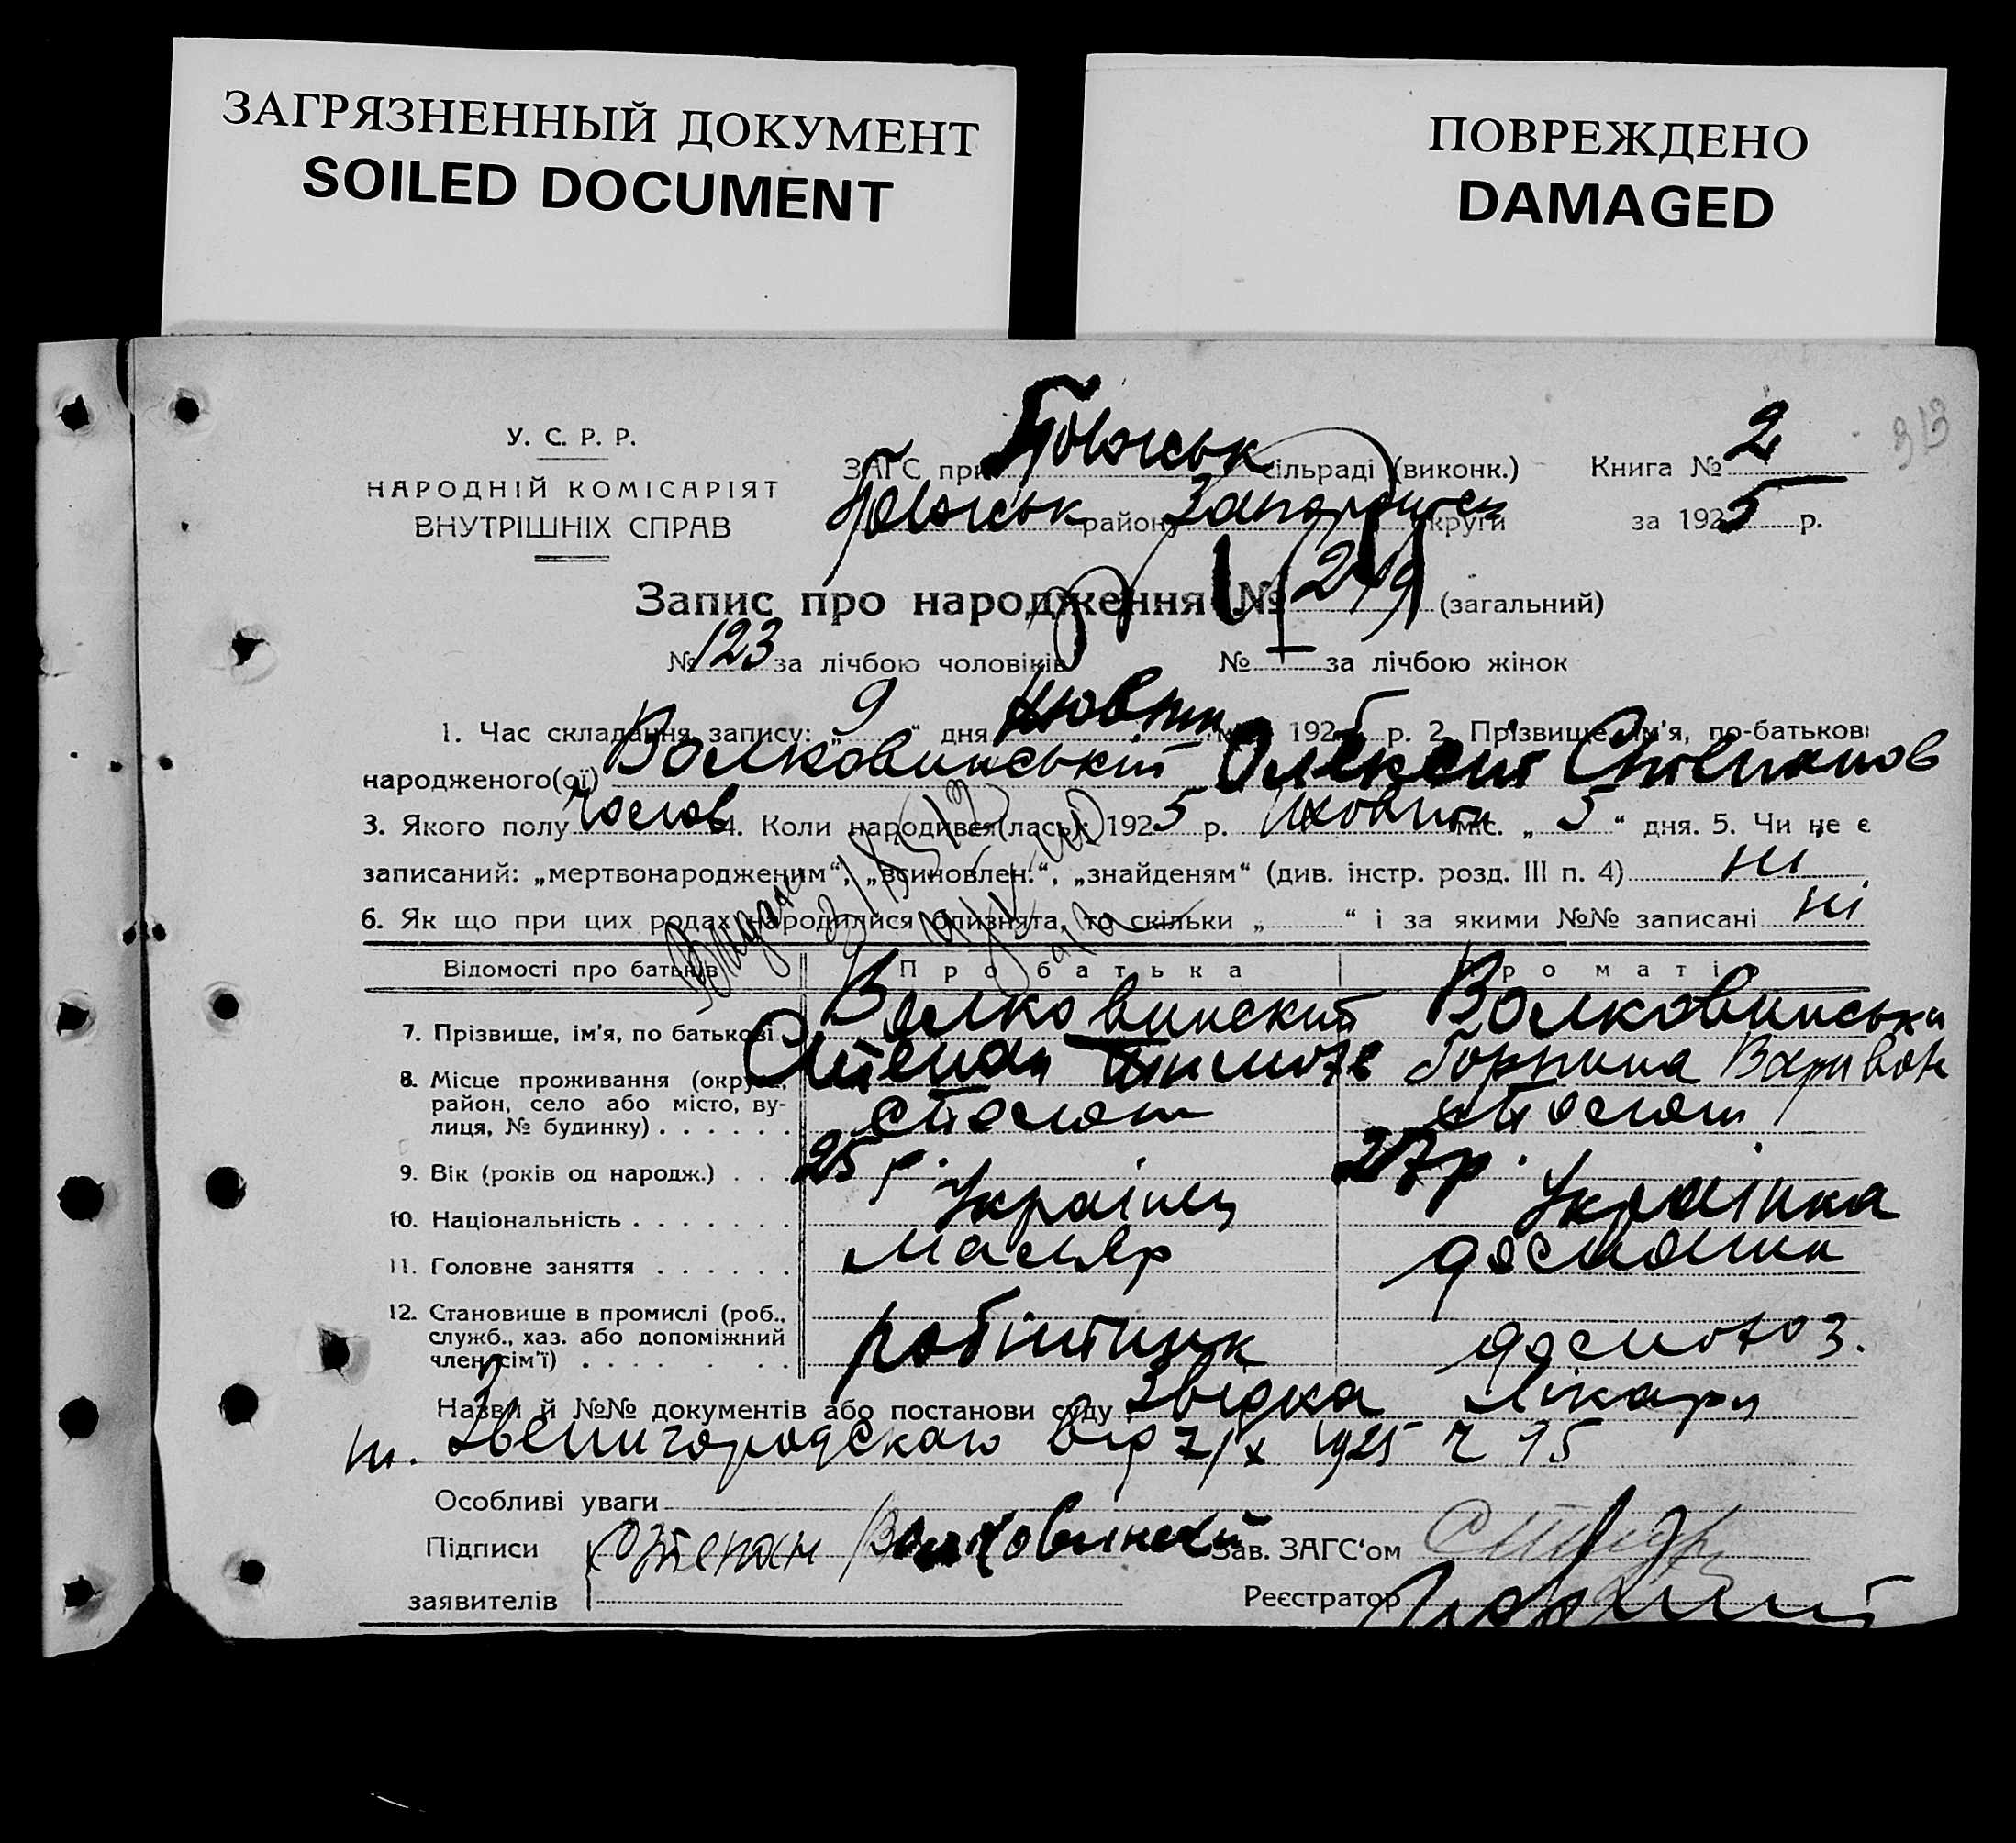 ЗАГРЯЗНЕННЫЙ ДОКУМЕНТ
SOILED DOCUMENT
ПОВРЕЖДЕНО
DAMAGED
У. С. Р. Р.
НАРОДНІЙ КОМІСАРІЯТ
ВНУТРІШНІХ СПРАВ
ЗАГС при сільраді (виконк.) Книга № 2
району округи за 1925 р.
Запис про народження № 219 (загальний)
№ 123 за лічбою чоловіків № за лічбою жінок
1. Час складання запису: „ 9 “ дня жовтн 1925 р. 2. Прізвище, ім'я, по-батькові
народженого(ої) Волковинській Олексій Степанов
3. Якого полу 4. Коли народився(лась): 1925 р. жовтн міс. „ 5 “ дня. 5. Чи не є
записаний: „мертвонародженим“, „всиновлен.“, „знайденям“ (див. інстр. розд. III п. 4) ні
6. Як що при цих родах народилися близнята, то скільки „ “ і за якими №№ записані ні
Відомості про батьків Про батька Про матір
7. Прізвище, ім'я, по батькові Волковинский Волковинська
Степан Тимоф Горпина Варивон
8. Місце проживання (округа,
район, село або місто, ву-
лиця, № будинку)
9. Вік (років од народж.) 25 р. 27 р.
10. Національність Українец Українка
11. Головне заняття Маляр
12. Становище в промислі (роб.,
служб., хаз. або допоміжний
член сім'ї) робітник
Назви й №№ документів або постанови суду Звідка Лікаря
Звенигородскаго від 7/X 1925 ч 15
Особливі уваги
Підписи Степан Волковинский Зав. ЗАГС‘ом
заявителів Реєстратор